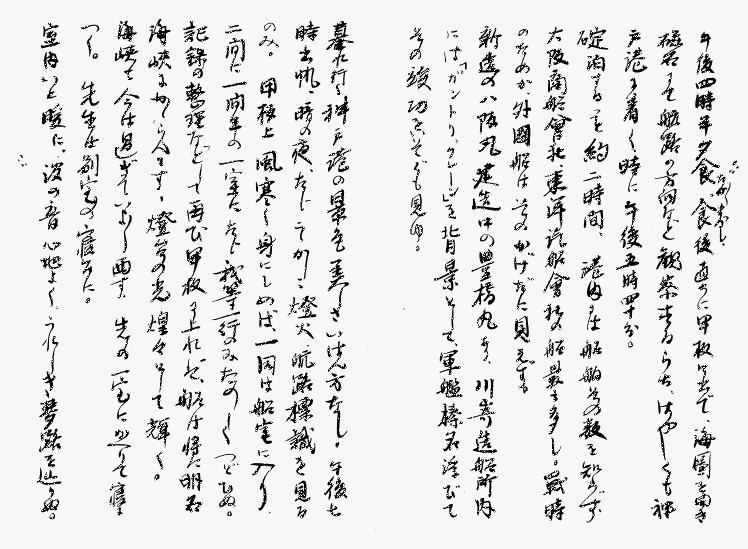 午後四時半夕食、食後直ちに甲板に出で、海圖を開き
磁石にて船路の方向など観察するうち、はやくも神
戸港に着く時に午後五時四十分。
碇泊すること約二時間、港内には船舶その数を知らず
大阪商船會社、東洋汽船會社の船最も多し。戰時
のためか外國船はそのかげだに見えず。
新造の八阪丸、建造中の豊橋丸あり、川崎造船所内
には「ガントリクレーン」を背景として軍艦榛名浮びて
その竣功をいそぐも見ゆ。
暮れ行く神戸港の景色美しさいはん方なし。午後七
時出帆、暗の夜、たゞそこかしこ燈火、航路標識を見る
のみ。甲板上風寒く身にしめば、一同は船室に入り
二間に一間半の一室に、たゞ我等一行のみたのしくつどひぬ。
記録の整理などして再び甲板に上れば、船は将に明石
海峡にかゝらんとす、燈台の光煌々として輝く。
海峡も今は過ぎていよ〱西す、先の一室に入りて寝に
つく。先生は別室の寝台に。
室内いと暖に、波の音心地よく、うれしき夢路を辿りぬ。